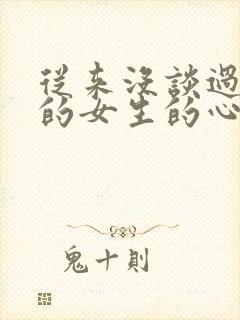 從来沒談過
的女生的心
鬼十則